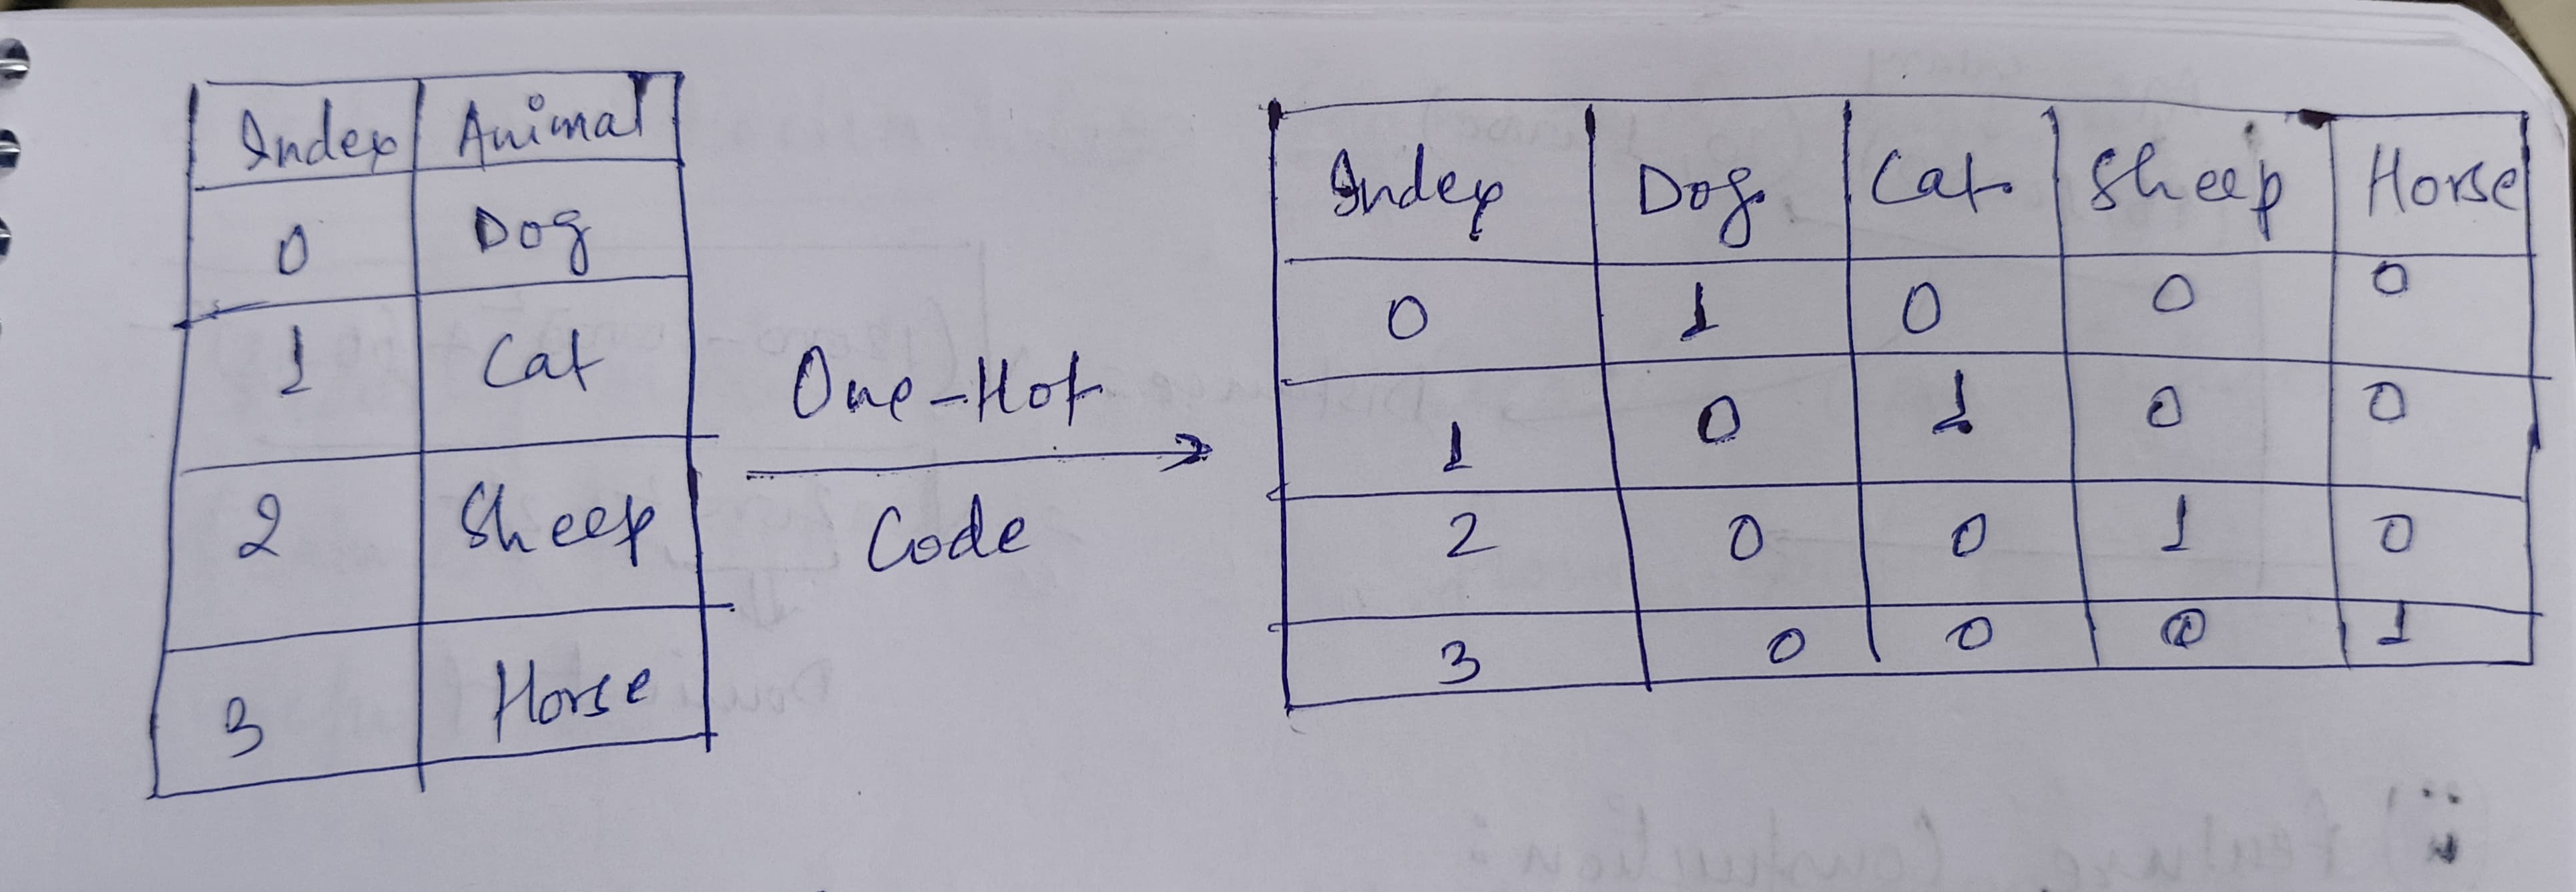 Index Animal
0 Dog
1 Cat
2 Sheep
3 Horse
One-Hot
Code
Index Dog Cat Sheep Horse
0 1 0 0 0
1 0 1 0 0
2 0 0 1 0
3 0 0 0 1